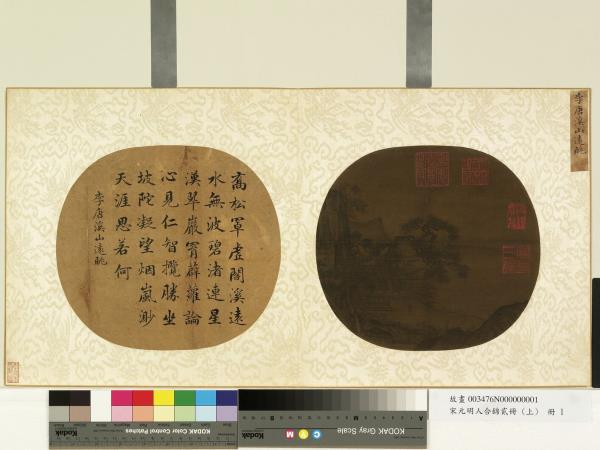 李唐溪山遠眺
喬松罩虗閣溪遠
水無波碧渚連星
漢翠巖
薜蘿論
心見仁智攬勝坐
坡陀凝望烟嵐渺
天涯思若何
李唐溪山遠眺
Kodak Color Control Patches
KODAK Gray Scale
C
Y
M
Kodak
故畫 003476N000000001
宋元明人合錦貳冊(上) 冊 1